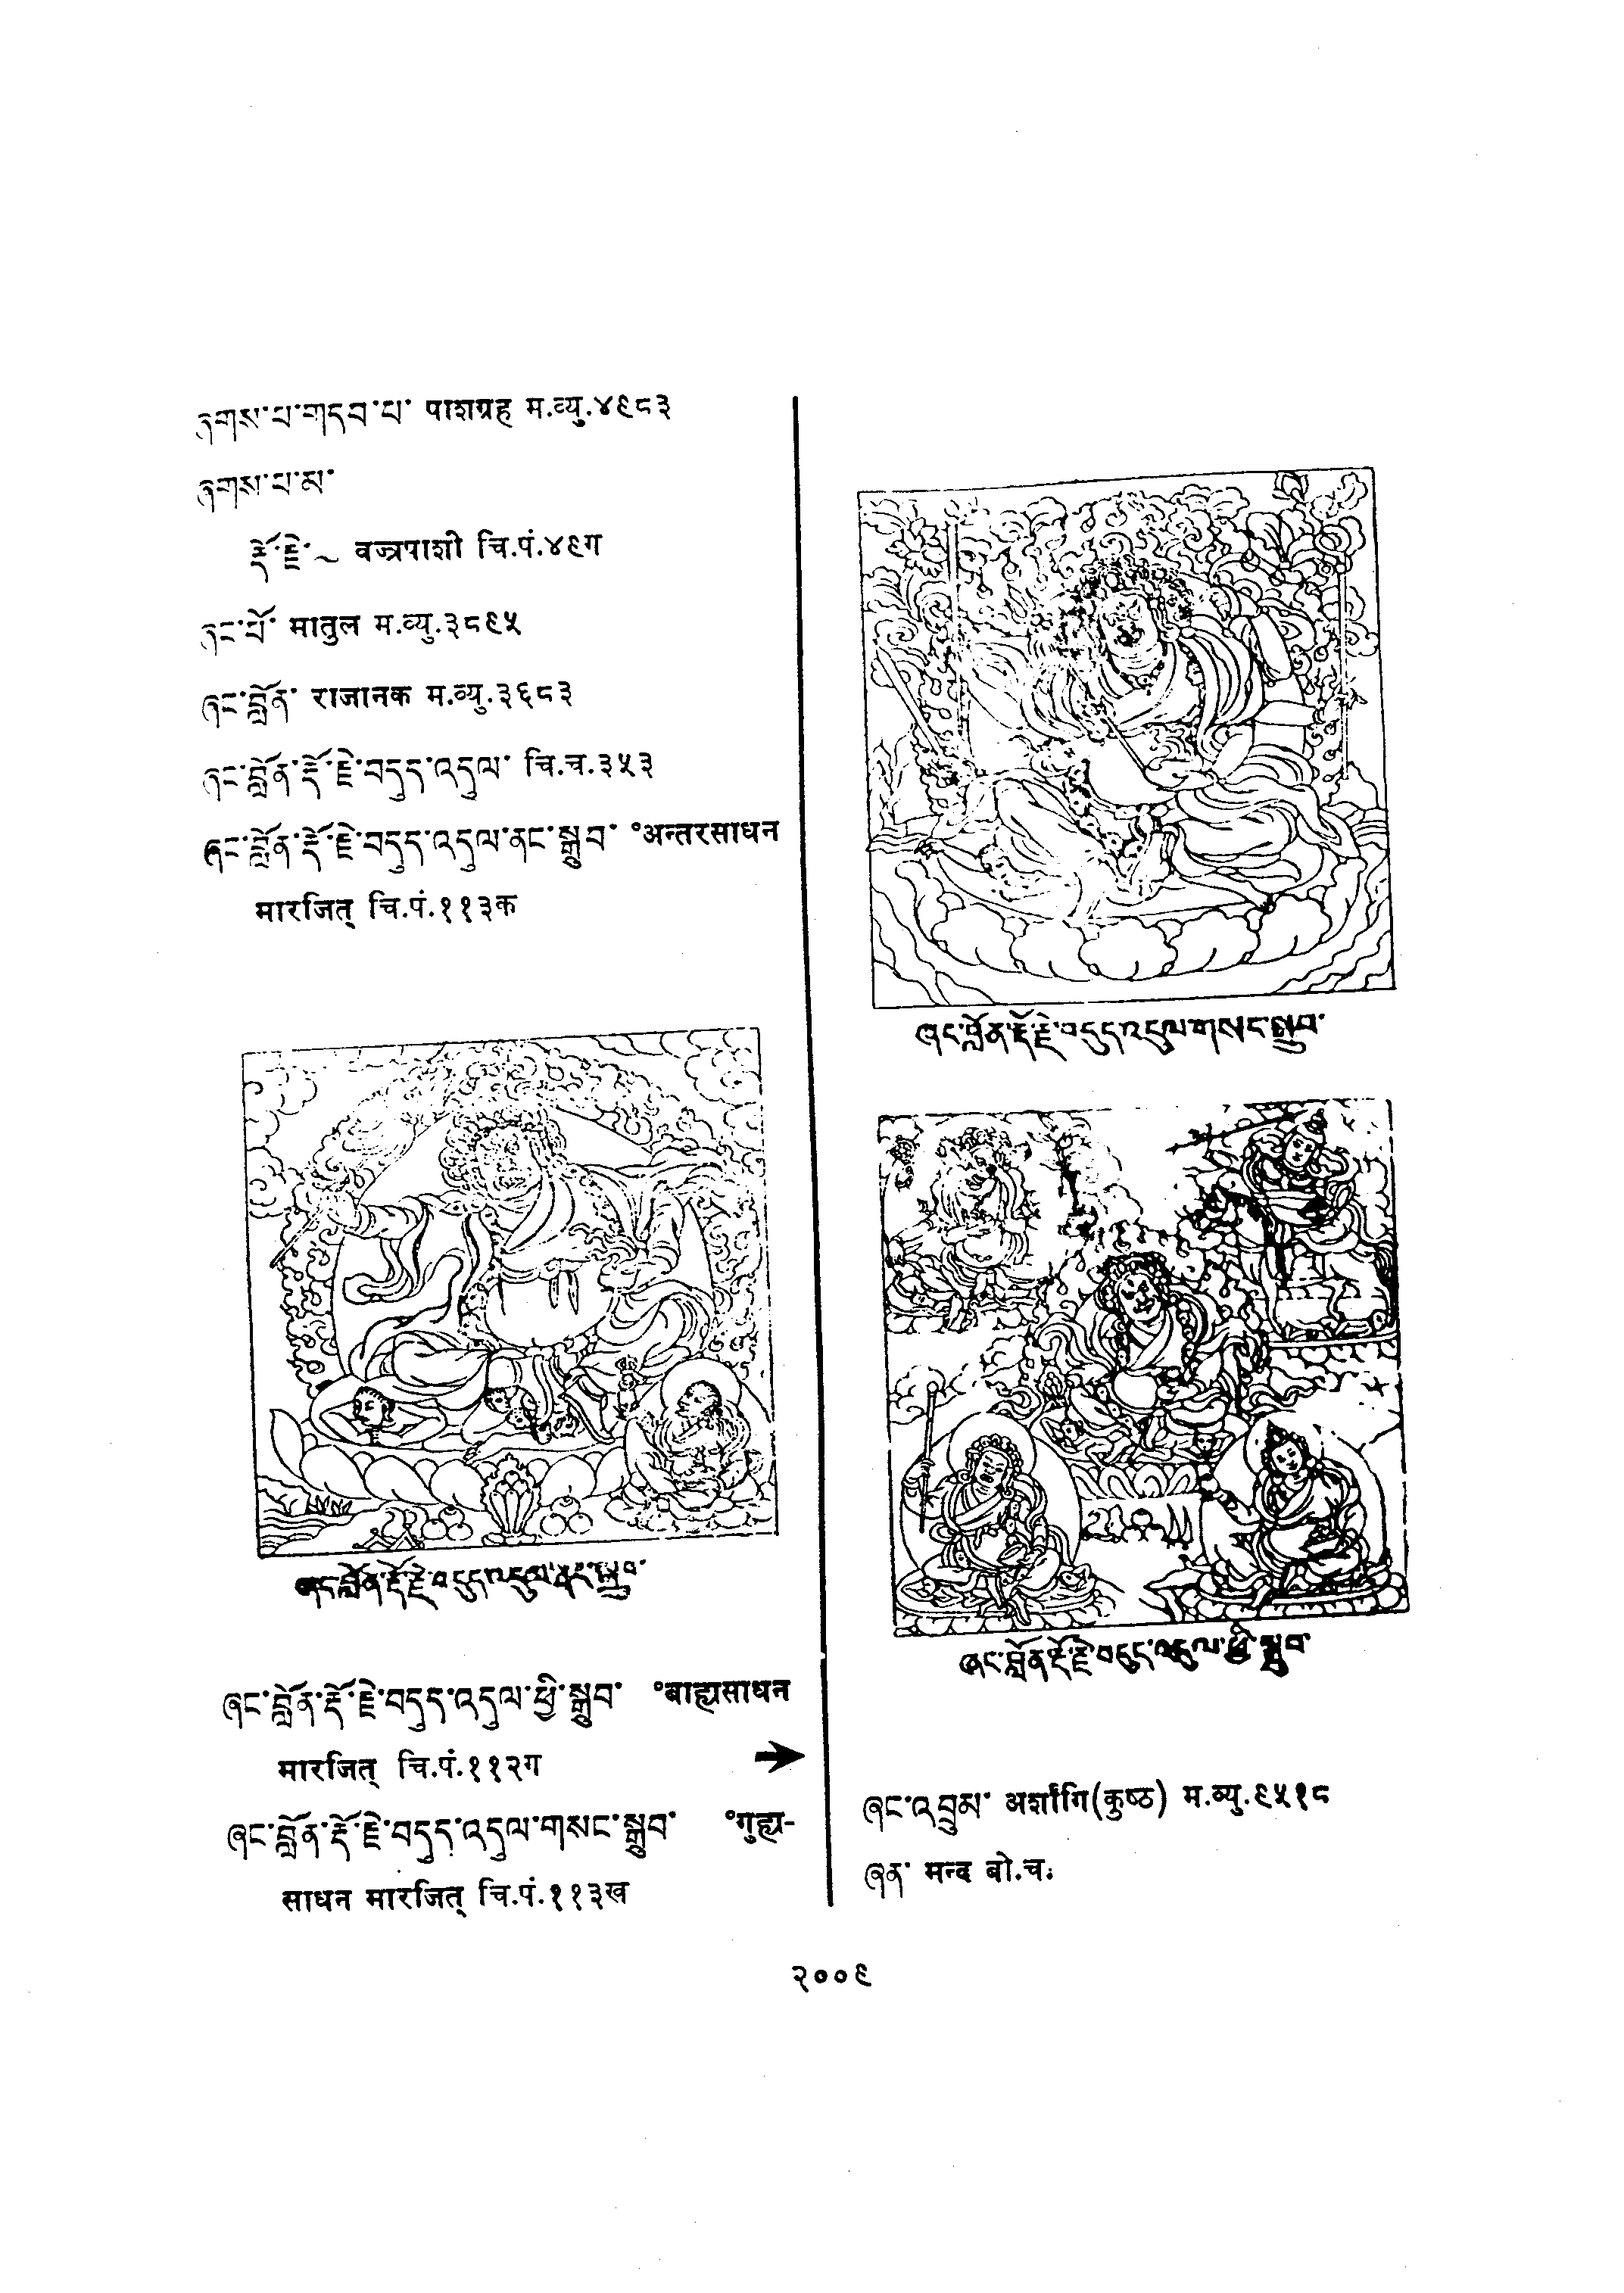 ཞགས་པ་གདབ་པ་ पाशग्रह म.व्यु.४९८३
ཞགས་པ་མ་
རྡོ་རྗེ་~ वज्रपाशी चि.पं.४९ग
ཞང་པོ་ मातुल म.व्यु.३८९५
ཞང་བློན་ राजानक म.व्यु.३६८३
ཞང་བློན་རྡོ་རྗེ་བདུད་འདུལ་ चि.च.३५३
ཞང་བློན་རྡོ་རྗེ་བདུད་འདུལ་ནང་སྒྲུབ་ °अन्तरसाधन
मारजित् चि.पं.११३क
ཞང་བློན་རྡོ་རྗེ་བདུད་འདུལ་ནང་སྒྲུབ་
ཞང་བློན་རྡོ་རྗེ་བདུད་འདུལ་ཕྱི་སྒྲུབ་ °बाह्यसाधन
मारजित् चि.पं.११२ग →
ཞང་བློན་རྡོ་རྗེ་བདུད་འདུལ་གསང་སྒྲུབ་ °गुह्य-
साधन मारजित् चि.पं.११३ख
ཞང་བློན་རྡོ་རྗེ་བདུད་འདུལ་གསང་སྒྲུབ་
ཞང་བློན་རྡོ་རྗེ་བདུད་འདུལ་ཕྱི་སྒྲུབ་
ཞང་འབྲུམ་ अर्शांगि(कुष्ठ) म.व्यु.९५१८
ཞན་ मन्द बो.च.
२००९